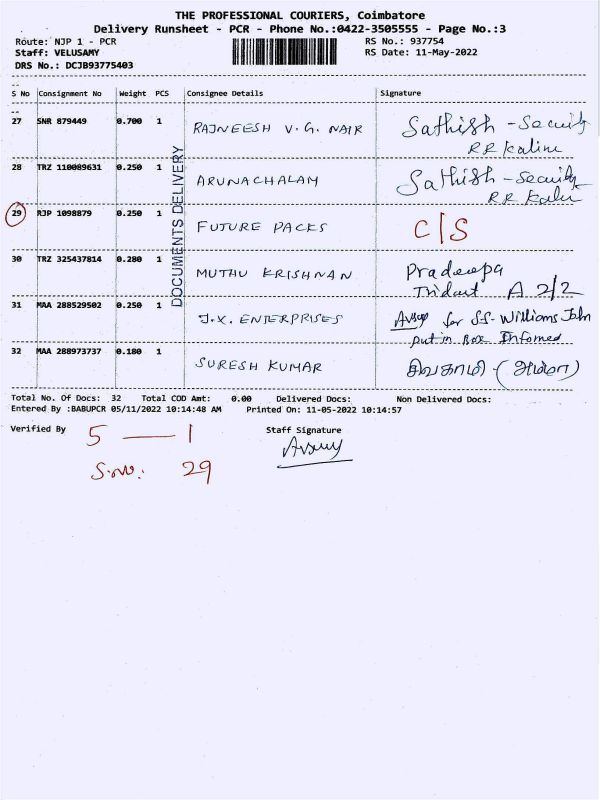 THE PROFESSIONAL COURIERS, Coimbatore
Delivery Runsheet - PCR - Phone No.:0422-3505555 - Page No.:3
Route: NJP 1 - PCR
RS No.: 937754
Staff: VELUSAMY
RS Date: 11-May-2022
DRS No.: DCJB93775403
S No Consignment No Weight PCS Consignee Details Signature
27 SNR 879449 0.700 1 RAJNEESH V.G. NAIR Sathish - Security
RR Kaline
28 TRZ 110089631 0.250 1 ARUNACHALAM Sathish - Security
RR
29 RJP 1098879 0.250 1 FUTURE PACKS C/S
30 TRZ 325437814 0.280 1 MUTHU KRISHNAN Pradeepa
A 2/2
31 MAA 288529502 0.250 1 J.X. ENTERPRISES for SS- Williams John
put in Box Infomed
32 MAA 288973737 0.180 1 SURESH KUMAR சிவகாமி - (அம்மா)
DOCUMENTS DELIVERY
Total No. Of Docs: 32 Total COD Amt: 0.00 Delivered Docs: Non Delivered Docs:
Entered By :BABUPCR 05/11/2022 10:14:48 AM Printed On: 11-05-2022 10:14:57
Verified By 5 — 1 Staff Signature
S.No. 29